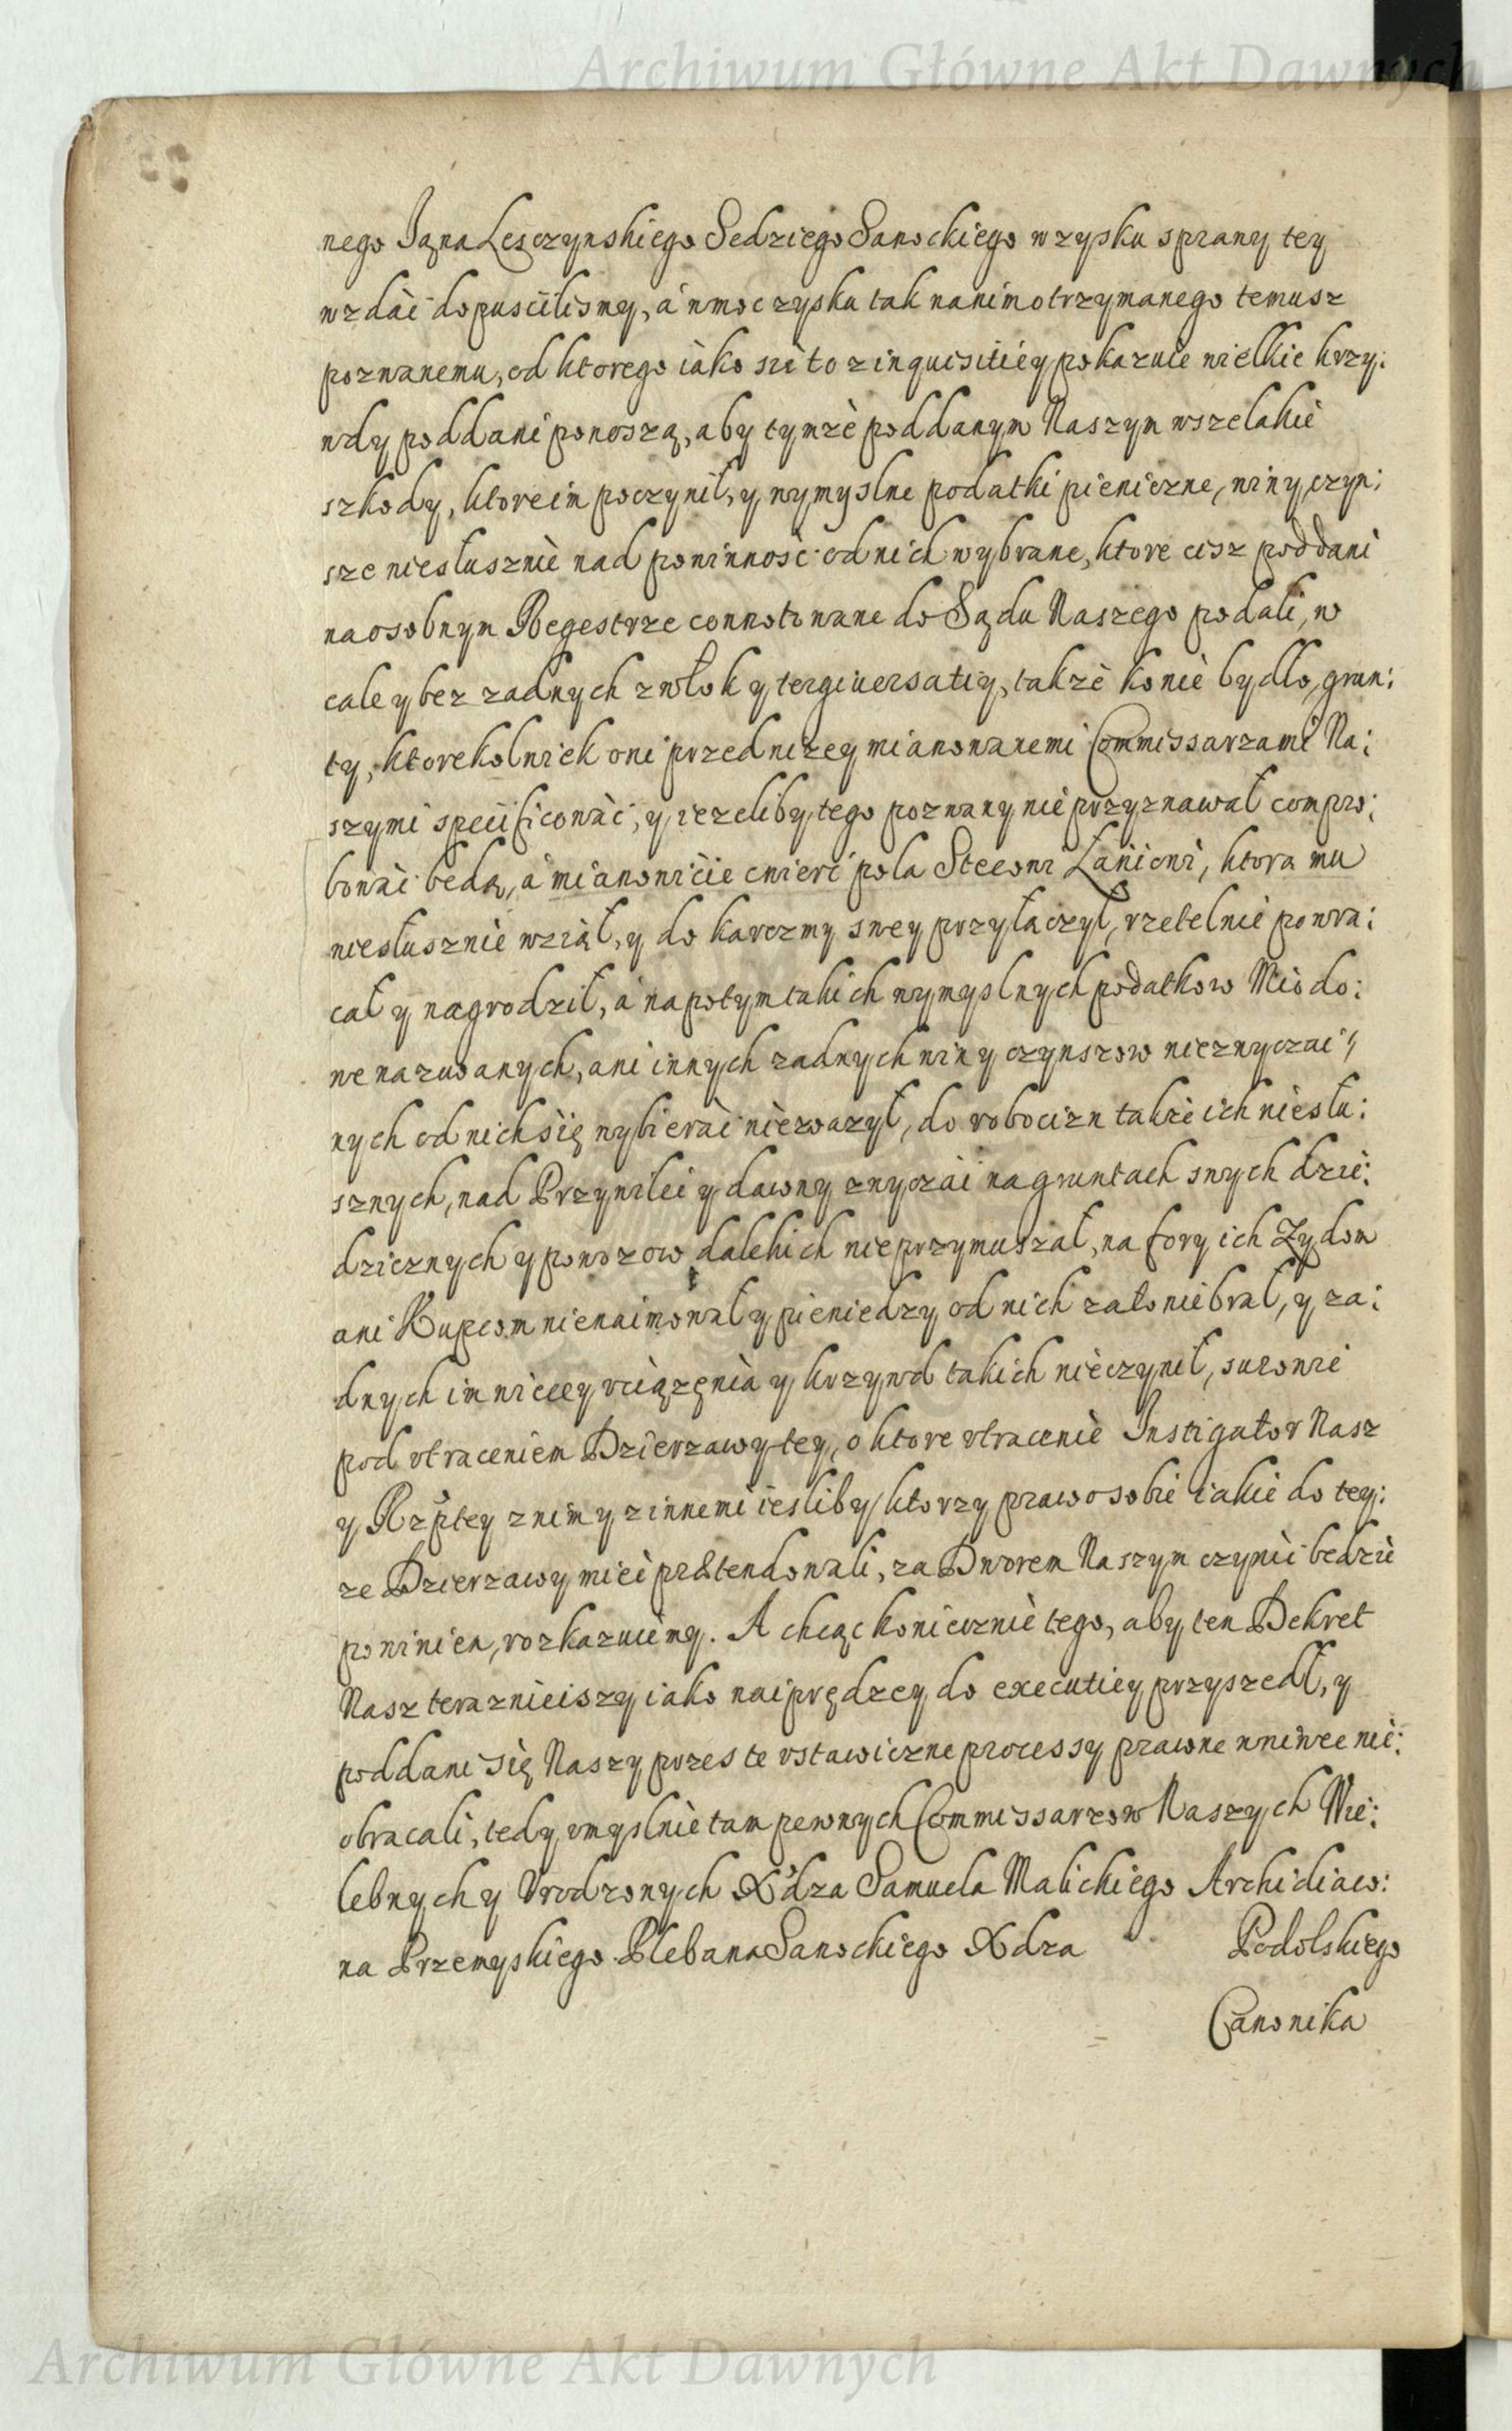 Archiwum Główne Akt Dawnych
nego Jana Leszczynskiego Sedziego Sanockiego w zysku sprawy tey
wzdać dopuscilismy, á w moc zysku tak nanim otrzymanego temusz
pozwanemu, od ktorego iáko się to z inquisitiéy pokazuie wielkie krzy:
wdy poddani ponoszą, aby tymże poddanym Naszym wszelakie
szkody, ktore im poczynił, y wymyslne podatki pieniezne, winy, czyn:
sze niesłusznie nad powinność od nich wybrane, ktore cisz poddani
na osobnym Regestrze connotowane do Sądu Naszego podali, w
cale y bez zadnych zwłok y tergiuersatiy, także konie bydło, grun:
ty, ktorekolwiek oni przed nizey mianowanemi Commissarzami Na:
szymi specificować, y iezeliby tego pozwany nie przyznawał compro:
bować będą, á mianowicie cwierć pola Stecowi Łaniowi, ktora mu
niesłusznie wziął, y do karczmy swey przyłaczył, rzetelnie powra:
cał y nagrodził, á napotym takich wymyslnych podatkow Miodo:
we nazwanych, ani innych zadnych winy czynszow niezwyczai//
nych od nich się wybierać nie ważył, do robocizn także ich niesłu:
sznych, nad Przywilei y dawny zwyczái na gruntach swych dzie:
dzicznych y powozow dalekich nie przymuszał, na fory ich Żydom
ani Kupcom nie naimował y pieniedzy od nich zato nie brał, y za:
dnych im wiecey vciążęnia y krzywd takich nie czynił, surowie
pod vtraceniem Dzierzawy tey, o ktore vtracenie Instigator Nasz
y Rzptey z nim y z innemi iesliby ktorzy prawo sobie iakie do tey:
ze Dzierzawy mieć prætendowali, za Dworem Naszym czynić będzie
powinien, rozkazuiemy. A chcąc koniecznie tego, aby ten Dekret
Nasz terazniejszy iako naiprędzey do executiey przyszedł, y
poddani się Naszy przes te vstawiczne processy prawne wniwec nie:
obracali, tedy vmyslnie tam pewnych Commissarzow Naszych Wie:
lebnych y Vrodzonych Xdza Samuela Malickiego Archidiaco:
na Przemyskiego Plebana Sanockiego Xdza Podolskiego
Canonika
Archiwum Główne Akt Dawnych